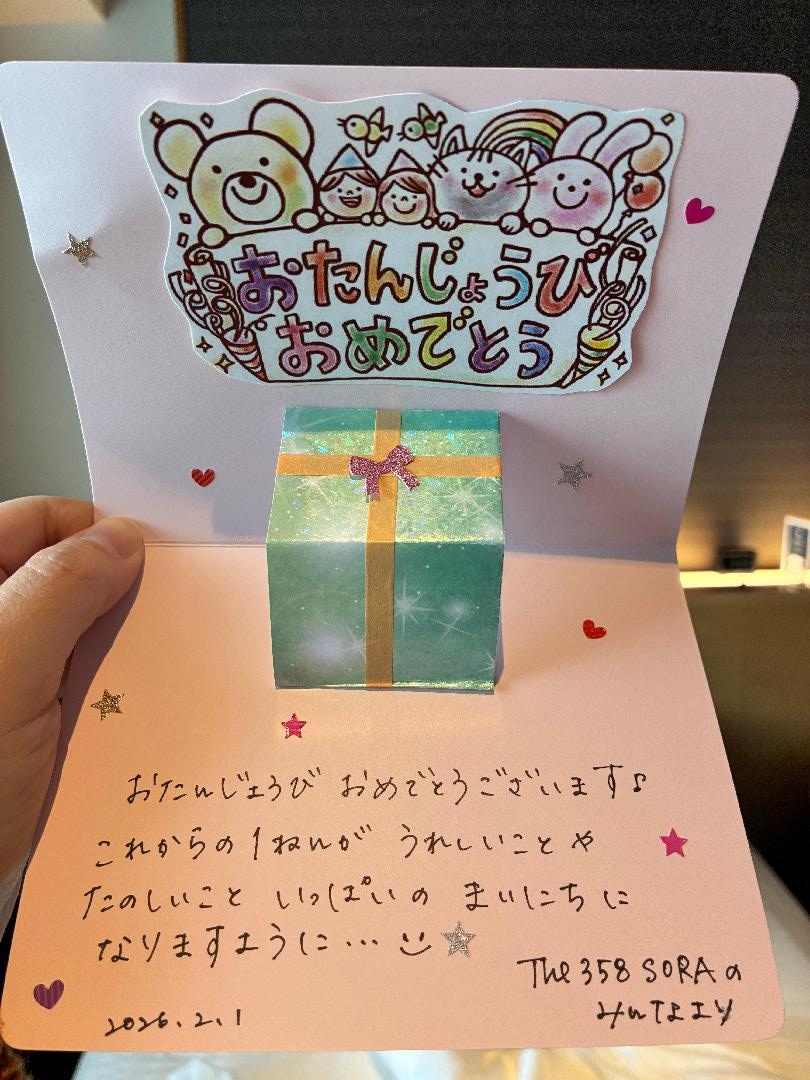 おたんじょうび
おめでとう
おたんじょうび おめでとうございます♪
これからの 1ねんが うれしいことや
たのしいこと いっぱいの まいにちに
なりますように…
The 358 SORAの
みんなより
2026.2.1